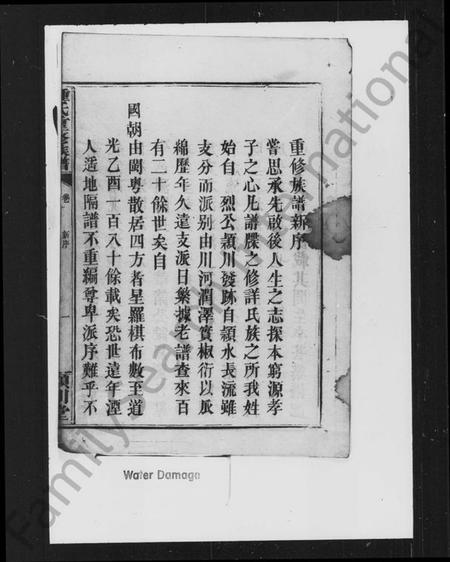 重修族譜新序
嘗思承先啟後人生之志探本窮源孝
子之心凡譜牒之修詳氏族之所我姓
始自 烈公潁川發跡自潁水長流雖
支分而派別由川河潤澤實椒衍以瓜
綿歷年久遠支派日繁據老譜查來百
有二十餘世矣自
國朝由閩粵散居四方者星羅棋布數至道
光乙酉一百八十餘載矣恐世遠年湮
人遙地隔譜不重編尊卑派序難乎不
氏重修族譜
卷 新序
潁川堂
Water Damage
FamilySearch International